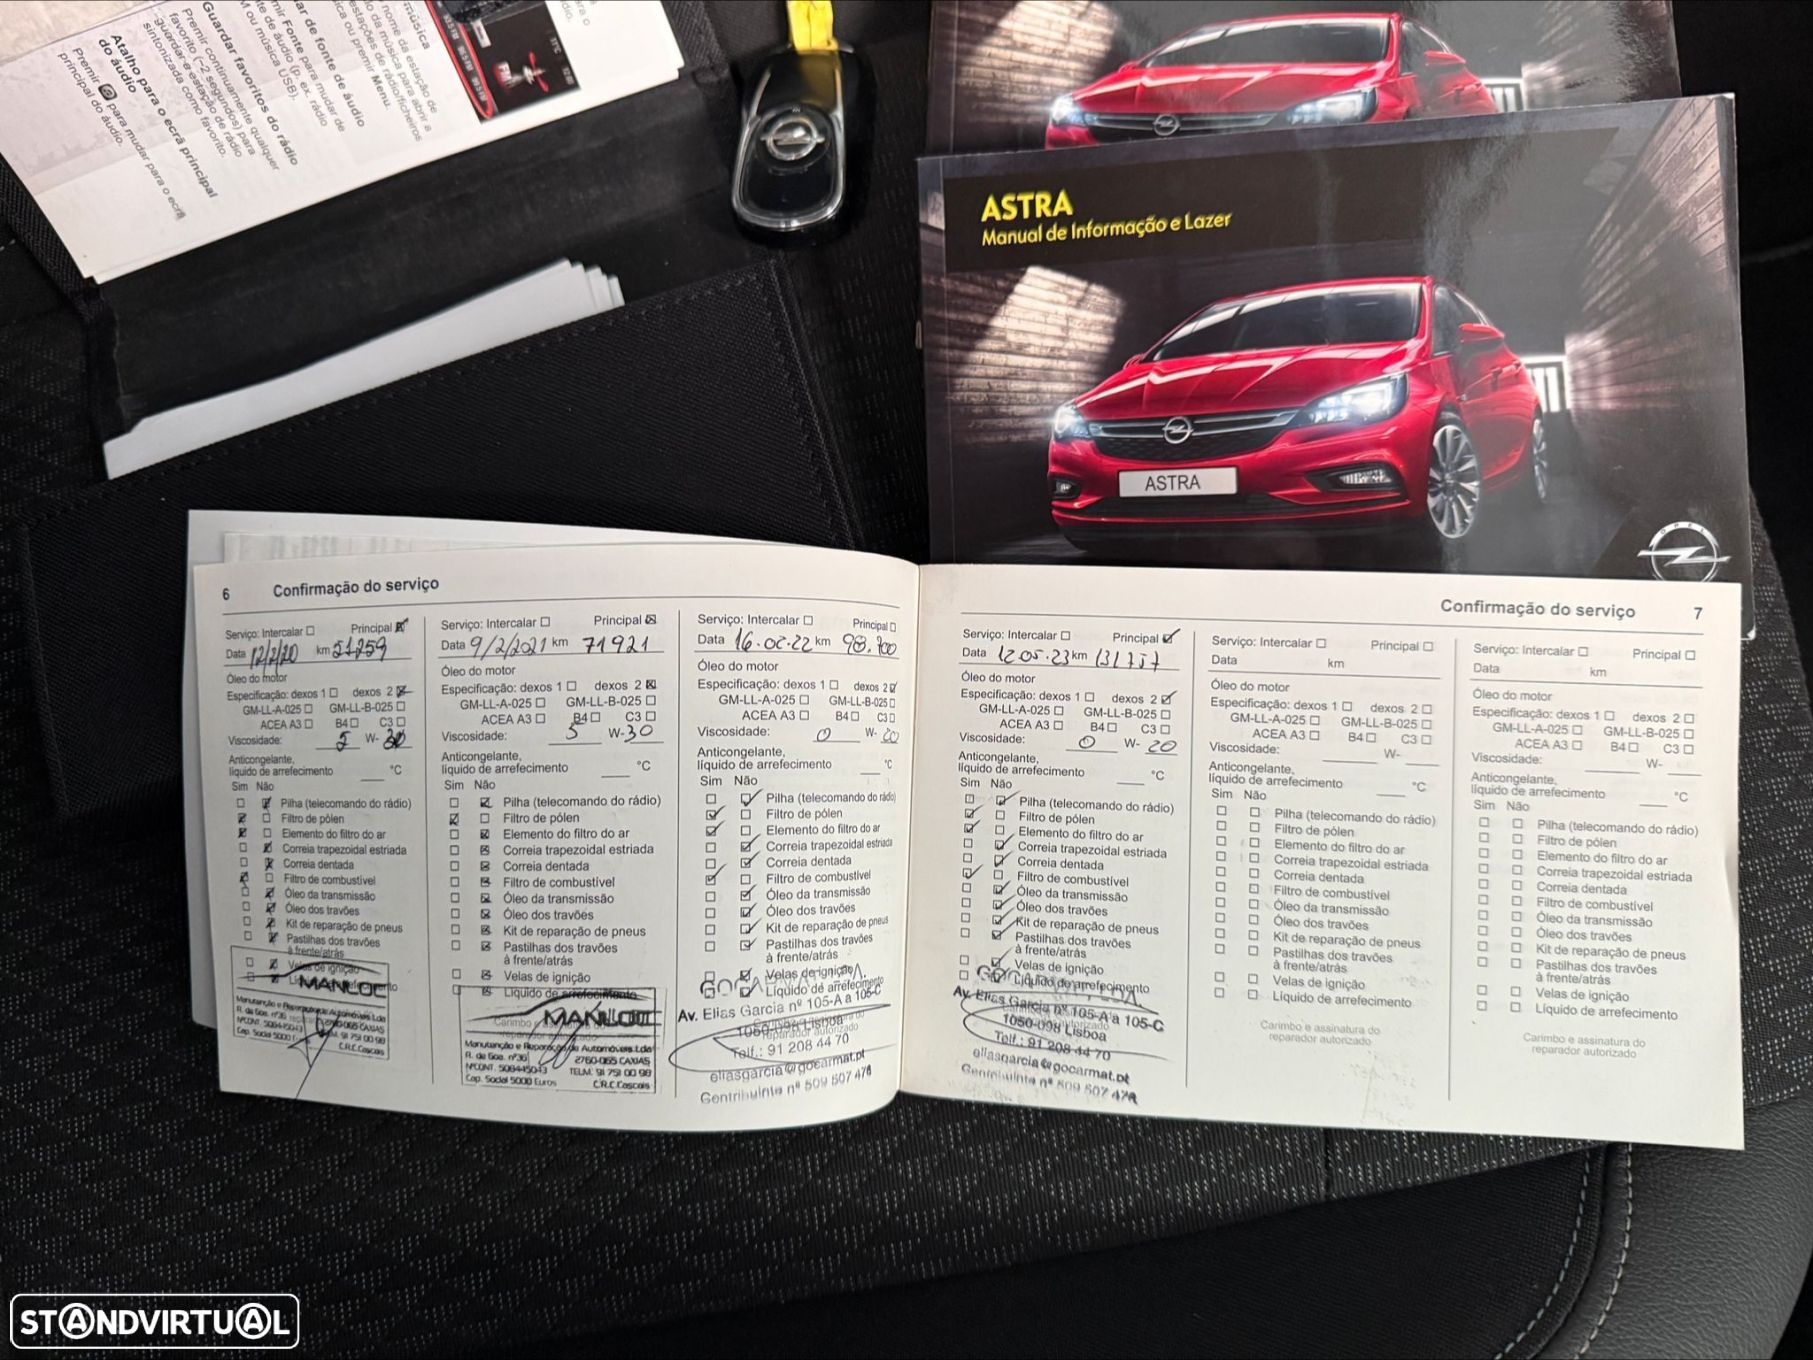 música
nome da estação de
da música para abrir a
estações de rádio/ficheiros
ou premir Menu.
ar de fonte de áudio
mir Fonte para mudar de
te de áudio (p. ex. rádio
M ou música USB).
Guardar favoritos do rádio
Premir continuamente qualquer
favorito (~2 segundos) para
guardar a estação de rádio
sintonizada como favorito.
Atalho para o ecrã principal
do áudio
Premir para mudar para o ecrã
principal do áudio.
ASTRA
Manual de Informação e Lazer
ASTRA
OPEL
6 Confirmação do serviço
Serviço: Intercalar Principal
Data 12/2/20 km
Óleo do motor
Especificação: dexos 1 dexos 2
GM-LL-A-025 GM-LL-B-025
ACEA A3 B4 C3
Viscosidade: 5 W- 30
Anticongelante,
líquido de arrefecimento °C
Sim Não
Pilha (telecomando do rádio)
Filtro de pólen
Elemento do filtro do ar
Correia trapezoidal estriada
Correia dentada
Filtro de combustível
Óleo da transmissão
Óleo dos travões
Kit de reparação de pneus
Pastilhas dos travões
à frente/atrás
Velas de ignição
MANLOC
Manutenção e Reparação de Automóveis Lda
R. de Goa, nº36 2760-065 CAXIAS
NºCONT. 508445043 TELM. 91 751 00 98
Cap. Social 5000 Euros C.R.C. Cascais
Serviço: Intercalar Principal
Data 9/2/2021 km 71921
Óleo do motor
Especificação: dexos 1 dexos 2
GM-LL-A-025 GM-LL-B-025
ACEA A3 B4 C3
Viscosidade: 5 W-30
Anticongelante,
líquido de arrefecimento °C
Sim Não
Pilha (telecomando do rádio)
Filtro de pólen
Elemento do filtro do ar
Correia trapezoidal estriada
Correia dentada
Filtro de combustível
Óleo da transmissão
Óleo dos travões
Kit de reparação de pneus
Pastilhas dos travões
à frente/atrás
Velas de ignição
Líquido de arrefecimento
MANLOC
Manutenção e Reparação de Automóveis Lda
R. de Goa, nº36 2760-065 CAXIAS
NºCONT. 508445043 TELM. 91 751 00 98
Cap. Social 5000 Euros C.R.C. Cascais
Serviço: Intercalar Principal
Data 16.02.22 km 98.700
Óleo do motor
Especificação: dexos 1 dexos 2
GM-LL-A-025 GM-LL-B-025
ACEA A3 B4 C3
Viscosidade: 0 W- 20
Anticongelante,
líquido de arrefecimento °C
Sim Não
Pilha (telecomando do rádio)
Filtro de pólen
Elemento do filtro do ar
Correia trapezoidal estriada
Correia dentada
Filtro de combustível
Óleo da transmissão
Óleo dos travões
Kit de reparação de pneus
Pastilhas dos travões
à frente/atrás
Velas de ignição
Líquido de arrefecimento
Av. Elias Garcia nº 105-A a 105-C
1050-098 Lisboa
reparador autorizado
Telf.: 91 208 44 70
eliasgarcia@gocarmat.pt
Contribuinte nº 509 507 476
Confirmação do serviço 7
Serviço: Intercalar Principal
Data 12.05.23 km 131757
Óleo do motor
Especificação: dexos 1 dexos 2
GM-LL-A-025 GM-LL-B-025
ACEA A3 B4 C3
Viscosidade: 0 W- 20
Anticongelante,
líquido de arrefecimento °C
Sim Não
Pilha (telecomando do rádio)
Filtro de pólen
Elemento do filtro do ar
Correia trapezoidal estriada
Correia dentada
Filtro de combustível
Óleo da transmissão
Óleo dos travões
Kit de reparação de pneus
Pastilhas dos travões
à frente/atrás
Velas de ignição
Líquido de arrefecimento
Av. Elias Garcia nº 105-A a 105-C
1050-098 Lisboa
reparador autorizado
Telf.: 91 208 44 70
eliasgarcia@gocarmat.pt
Contribuinte nº 509 507 476
Serviço: Intercalar Principal
Data km
Óleo do motor
Especificação: dexos 1 dexos 2
GM-LL-A-025 GM-LL-B-025
ACEA A3 B4 C3
Viscosidade: W-
Anticongelante,
líquido de arrefecimento °C
Sim Não
Pilha (telecomando do rádio)
Filtro de pólen
Elemento do filtro do ar
Correia trapezoidal estriada
Correia dentada
Filtro de combustível
Óleo da transmissão
Óleo dos travões
Kit de reparação de pneus
Pastilhas dos travões
à frente/atrás
Velas de ignição
Líquido de arrefecimento
Carimbo e assinatura do
reparador autorizado
Serviço: Intercalar Principal
Data km
Óleo do motor
Especificação: dexos 1 dexos 2
GM-LL-A-025 GM-LL-B-025
ACEA A3 B4 C3
Viscosidade: W-
Anticongelante,
líquido de arrefecimento °C
Sim Não
Pilha (telecomando do rádio)
Filtro de pólen
Elemento do filtro do ar
Correia trapezoidal estriada
Correia dentada
Filtro de combustível
Óleo da transmissão
Óleo dos travões
Kit de reparação de pneus
Pastilhas dos travões
à frente/atrás
Velas de ignição
Líquido de arrefecimento
Carimbo e assinatura do
reparador autorizado
STANDVIRTUAL